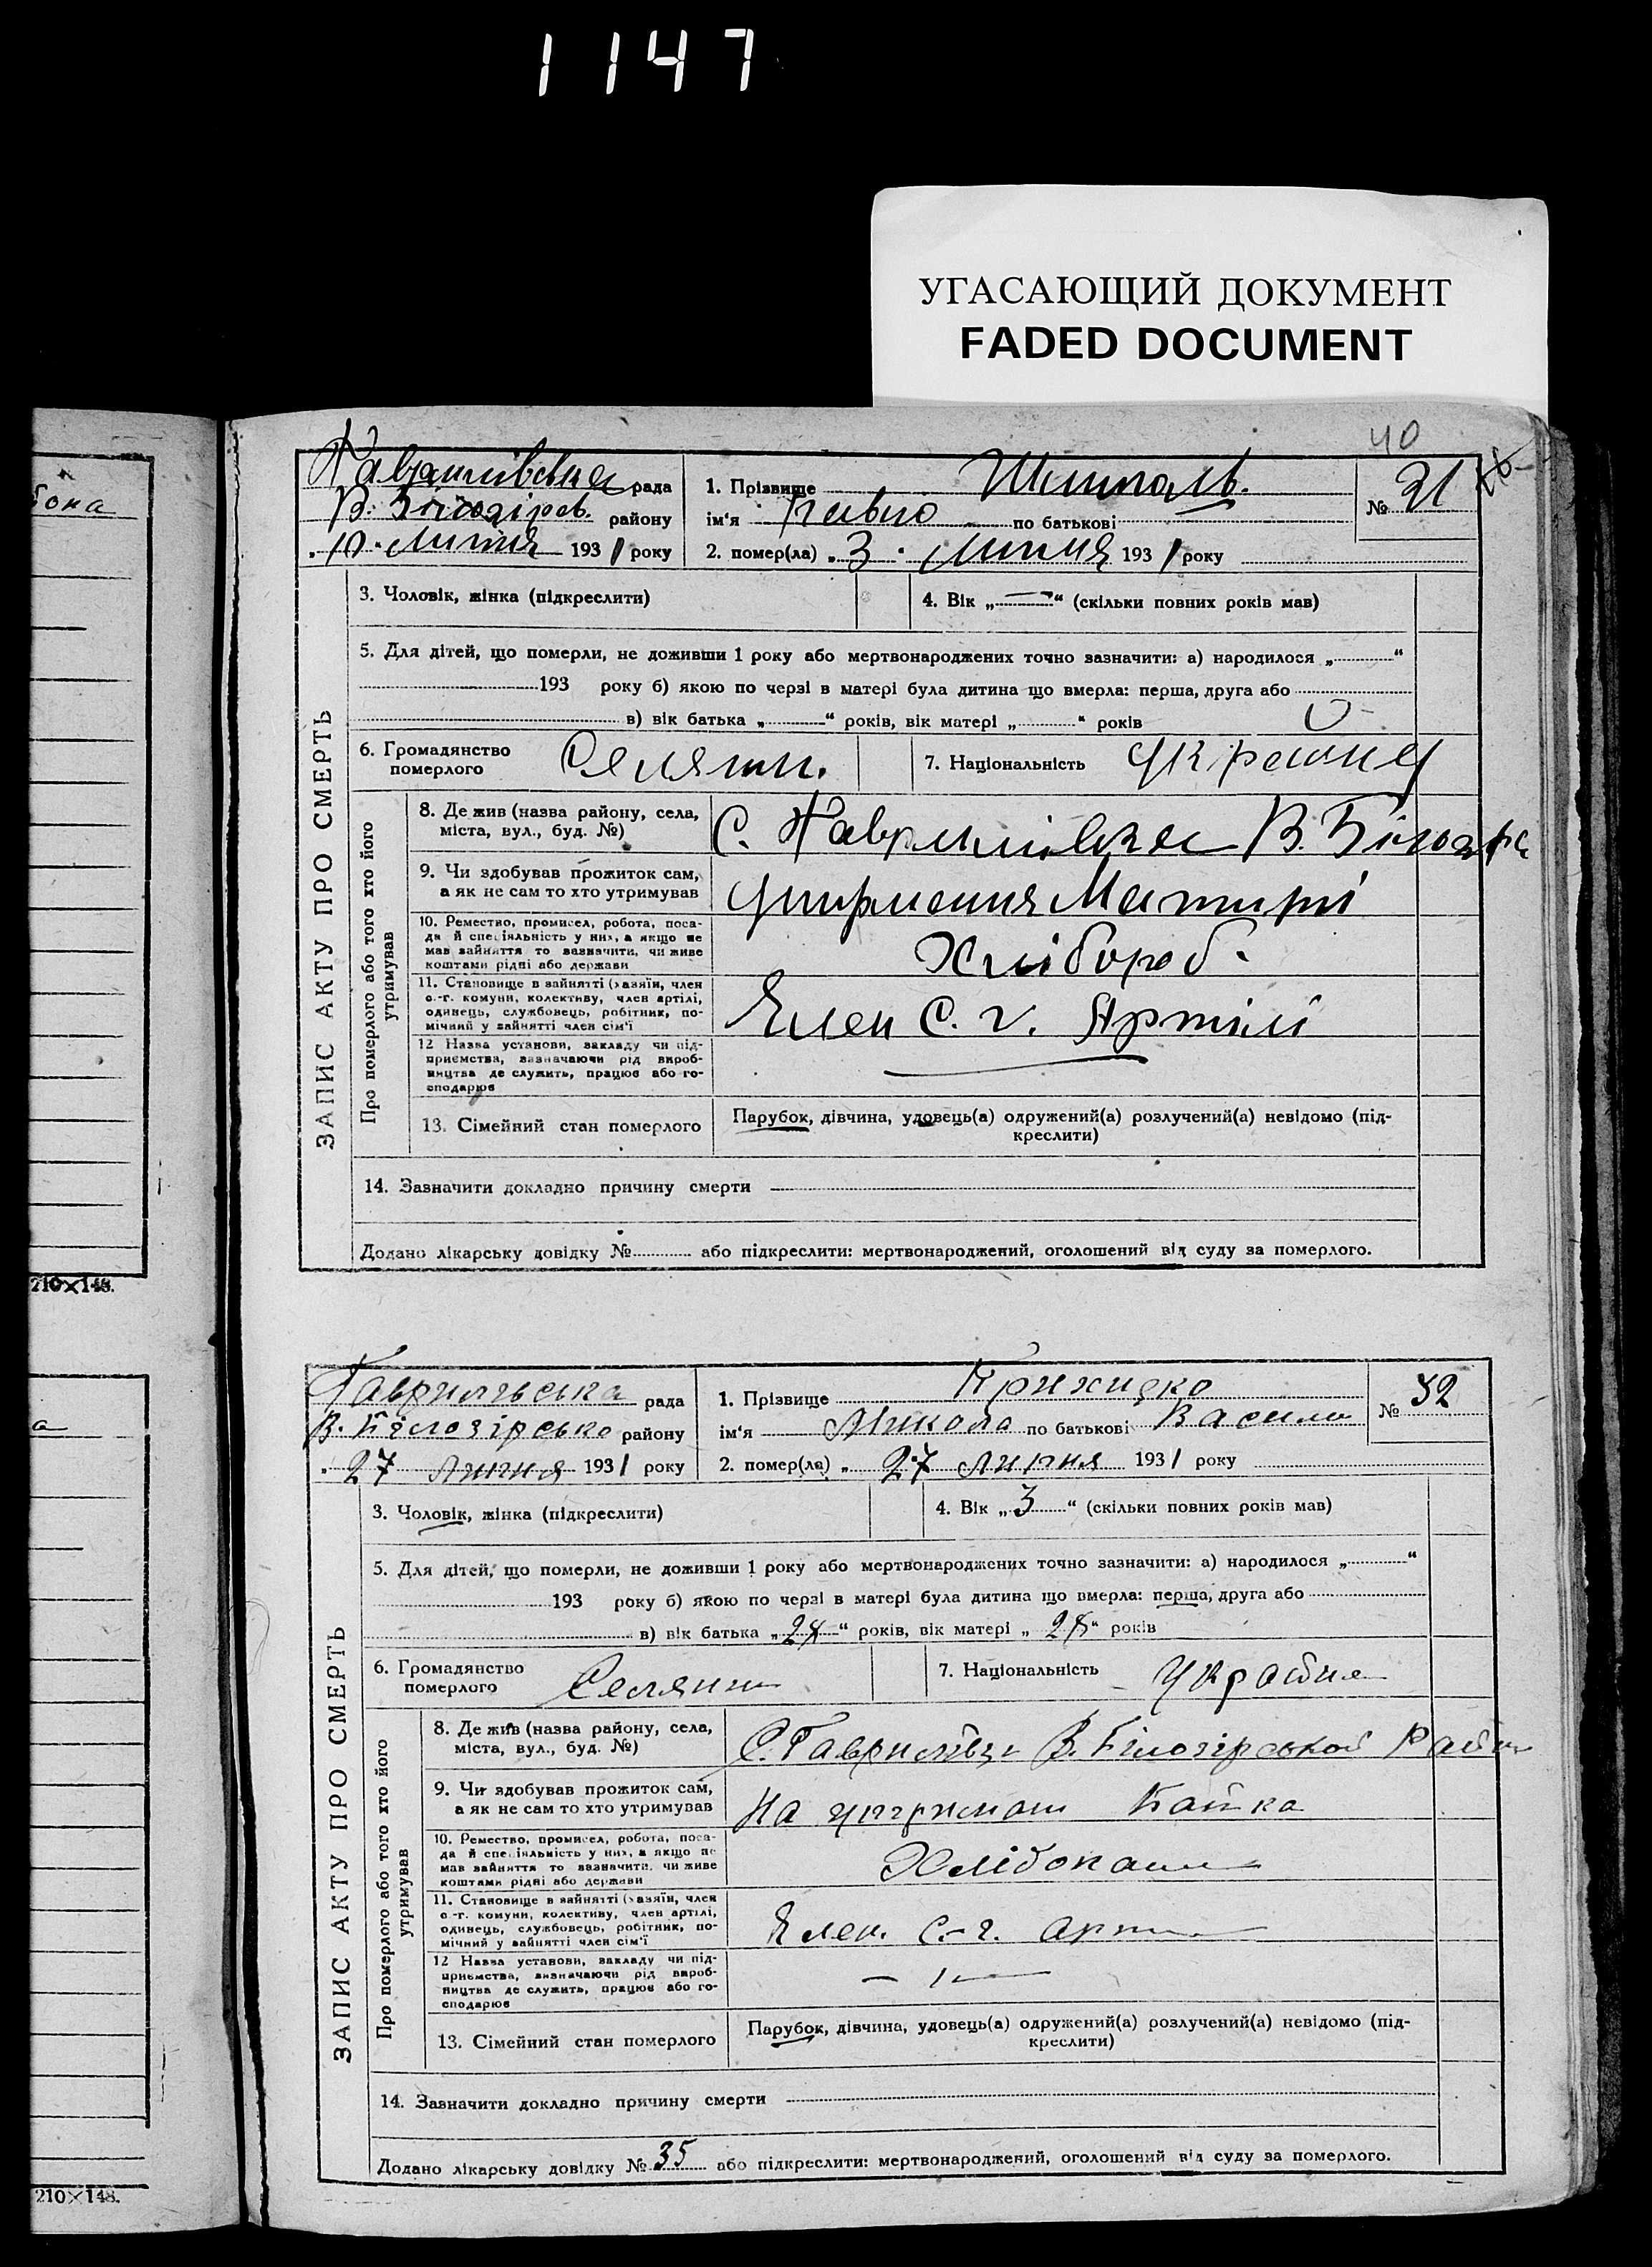 1147
УГАСАЮЩИЙ ДОКУМЕНТ
FADED DOCUMENT
40
рада
1. Прізвище
№ 21
району
ім'я Павло по батькові
„10" Липня 1931 року
2. помер(ла) „3" Липня 1931 року
3. Чоловік, жінка (підкреслити)
4. Вік „—" (скільки повних років мав)
5. Для дітей, що померли, не доживши 1 року або мертвонароджених точно зазначити: а) народилося „ "
193 року б) якою по черзі в матері була дитина що вмерла: перша, друга або
в) вік батька „ " років, вік матері „ " років
6. Громадянство померлого Селянин.
7. Національність
ЗАПИС АКТУ ПРО СМЕРТЬ
Про померлого або того хто його утримував
8. Де жив (назва району, села,
міста, вул., буд. №)
С. В.
9. Чи здобував прожиток сам,
а як не сам то хто утримував
10. Ремество, промисел, робота, поса-
да й спеціяльність у них, а якщо не
мав зайняття то зазначити, чи живе
коштами рідні або держави
Хлібороб.
11. Становище в зайнятті (хазяїн, член
с.-г. комуни, колективу, член артілі,
одинець, службовець, робітник, по-
мічний у зайнятті член сім'ї
Член С. г. Артілі
12 Назва установи, закладу чи під-
приємства, зазначаючи рід вироб-
ництва де служить, працює або го-
сподарює
13. Сімейний стан померлого
Парубок, дівчина, удовець(а) одружений(а) розлучений(а) невідомо (під-
креслити)
14. Зазначити докладно причину смерти
Додано лікарську довідку № або підкреслити: мертвонароджений, оголошений від суду за померлого.
210×148.
рада
1. Прізвище
№ 32
В. Білозірсько району
ім'я Микола по батькові Васили
„27 Липня 1931 року
2. помер(ла) „ 27 Липня 1931 року
3. Чоловік, жінка (підкреслити)
4. Вік „3" (скільки повних років мав)
5. Для дітей, що померли, не доживши 1 року або мертвонароджених точно зазначити: а) народилося „ "
193 року б) якою по черзі в матері була дитина що вмерла: перша, друга або
в) вік батька „ " років, вік матері „ " років
6. Громадянство померлого Селянин
7. Національність
ЗАПИС АКТУ ПРО СМЕРТЬ
Про померлого або того хто його утримував
8. Де жив (назва району, села,
міста, вул., буд. №)
С. Гаврилівци В. Білозірської
9. Чи здобував прожиток сам,
а як не сам то хто утримував
На Батка
10. Ремество, промисел, робота, поса-
да й спеціяльність у них, а якщо не
мав зайняття то зазначити, чи живе
коштами рідні або держави
11. Становище в зайнятті (хазяїн, член
с.-г. комуни, колективу, член артілі,
одинець, службовець, робітник, по-
мічний у зайнятті член сім'ї
Член. С.-г.
12 Назва установи, закладу чи під-
приємства, зазначаючи рід вироб-
ництва де служить, працює або го-
сподарює
13. Сімейний стан померлого
Парубок, дівчина, удовець(а) одружений(а) розлучений(а) невідомо (під-
креслити)
14. Зазначити докладно причину смерти
Додано лікарську довідку № 35 або підкреслити: мертвонароджений, оголошений від суду за померлого.
210×148.